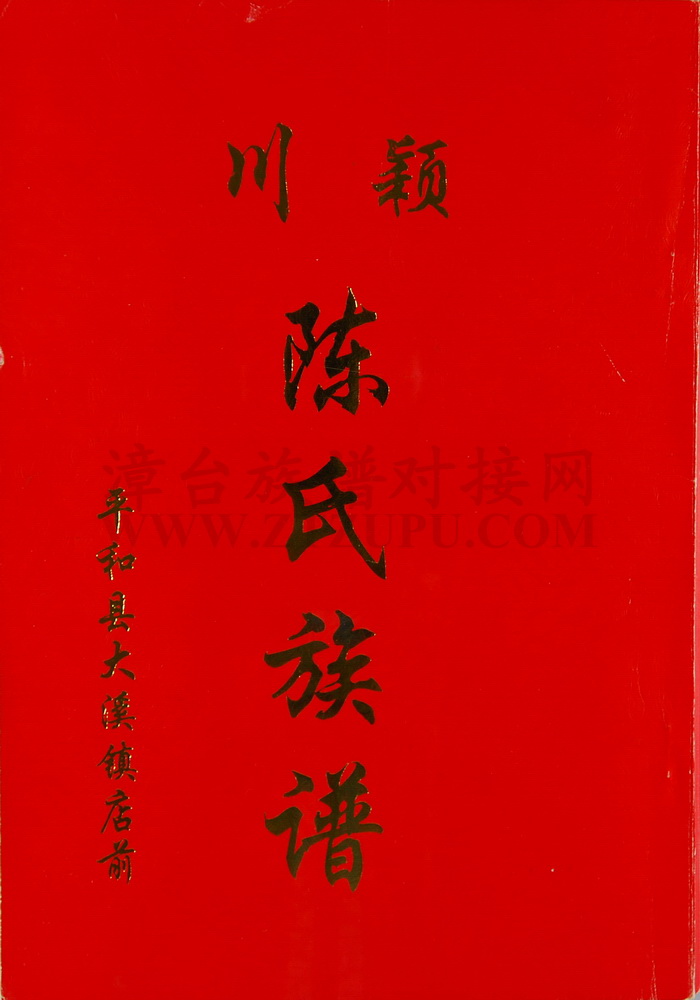 颖川
陈氏族谱
平和县大溪镇店前
漳台族谱对接网
WWW.ZTZUPU.COM